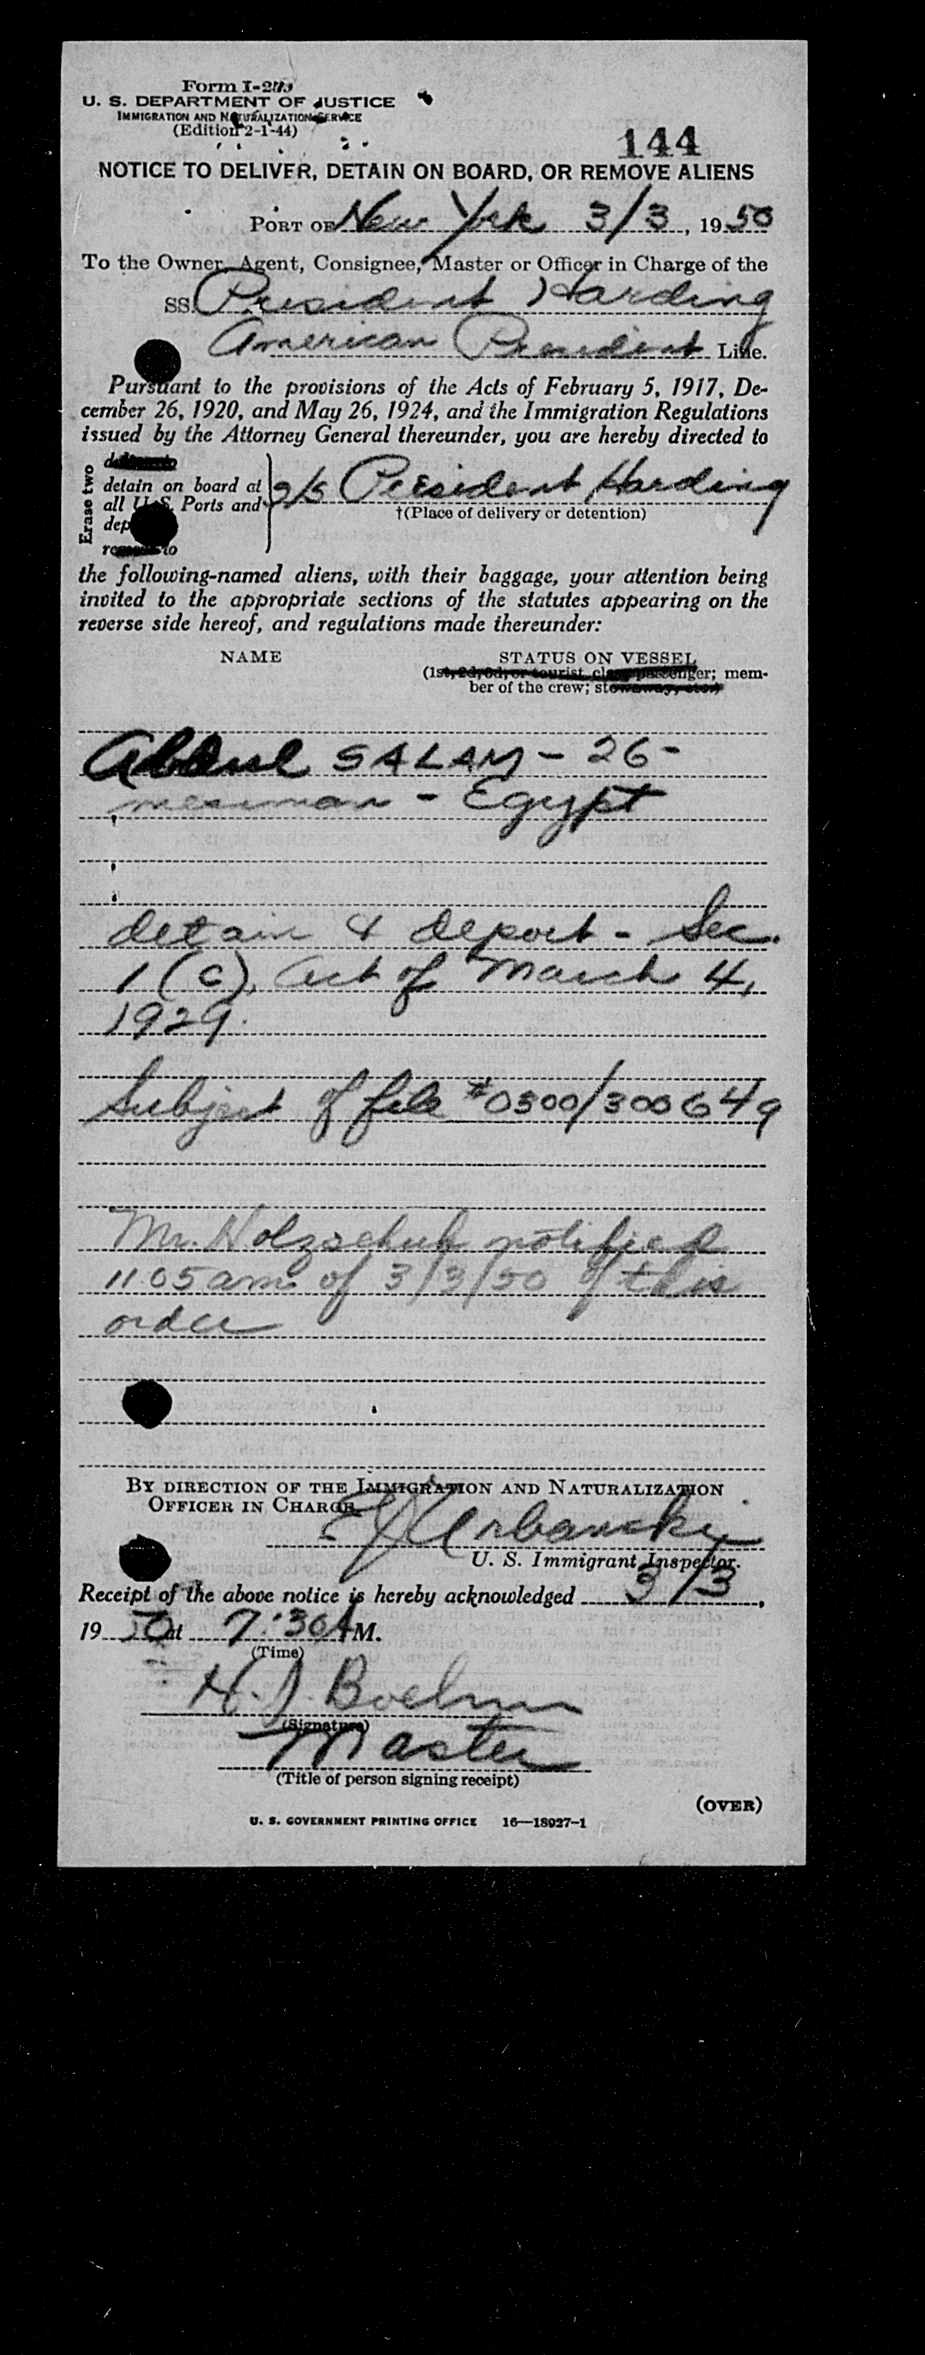 Form I-259
U. S. DEPARTMENT OF JUSTICE
IMMIGRATION AND NATURALIZATION SERVICE
(Edition 2-1-44)
144
NOTICE TO DELIVER, DETAIN ON BOARD, OR REMOVE ALIENS
PORT OF New York 3/3, 1950
To the Owner, Agent, Consignee, Master or Officer in Charge of the
SS. President Harding
American President Line.
Pursuant to the provisions of the Acts of February 5, 1917, De-
cember 26, 1920, and May 26, 1924, and the Immigration Regulations
issued by the Attorney General thereunder, you are hereby directed to
Erase two
detain on board at
all U. S. Ports and
S/S President Harding
†(Place of delivery or detention)
the following-named aliens, with their baggage, your attention being
invited to the appropriate sections of the statutes appearing on the
reverse side hereof, and regulations made thereunder:
NAME STATUS ON VESSEL
(1st, 2d, 3d, or tourist class passenger; mem-
ber of the crew; stowaway, etc.)
Abdul SALAM - 26 -
messman - Egypt
detain & deport - Sec.
1 (c), Act of March 4,
1929.
Subject of file #0300/300649
Mr. Holzschuh notified
11:05 am of 3/3/50 of this
order
BY DIRECTION OF THE IMMIGRATION AND NATURALIZATION
OFFICER IN CHARGE.
E J Urbanski
U. S. Immigrant Inspector.
Receipt of the above notice is hereby acknowledged 3/3,
1950 at 7:30 A M.
(Time)
(Signature)
Master
(Title of person signing receipt)
(OVER)
U. S. GOVERNMENT PRINTING OFFICE 16—18927-1